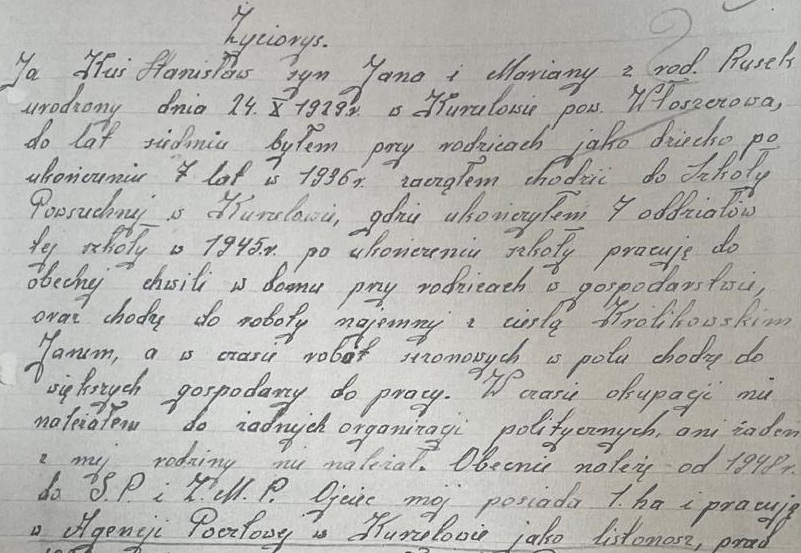 Życiorys.
Ja Kuś Stanisław syn Jana i Marianny z rod. Rusek
urodzony dnia 24. X 1929r. w Kurzelowie pow. Włoszczowa,
do lat siedmiu byłem przy rodzicach jako dziecko po
ukończeniu 7 lat w 1936r. zacząłem chodzić do Szkoły
Powszechnej w Kurzelowie, gdzie ukończyłem 7 oddziałów
tej szkoły w 1945r. po ukończeniu szkoły pracuję do
obecnej chwili w domu przy rodzicach w gospodarstwie,
oraz chodzę do roboty najemnej z cieślą Królikowskim
Janem, a w czasie robót sezonowych w polu chodzę do
większych gospodarzy do pracy. W czasie okupacji nie
należałem do żadnych organizacji politycznych, ani żaden
z mej rodziny nie należał. Obecnie należę od 1948r.
do S.P. i Z.M.P. Ojciec mój posiada 1. ha i pracuję
w Agencji Pocztowej w Kurzelowie jako listonosz, prac